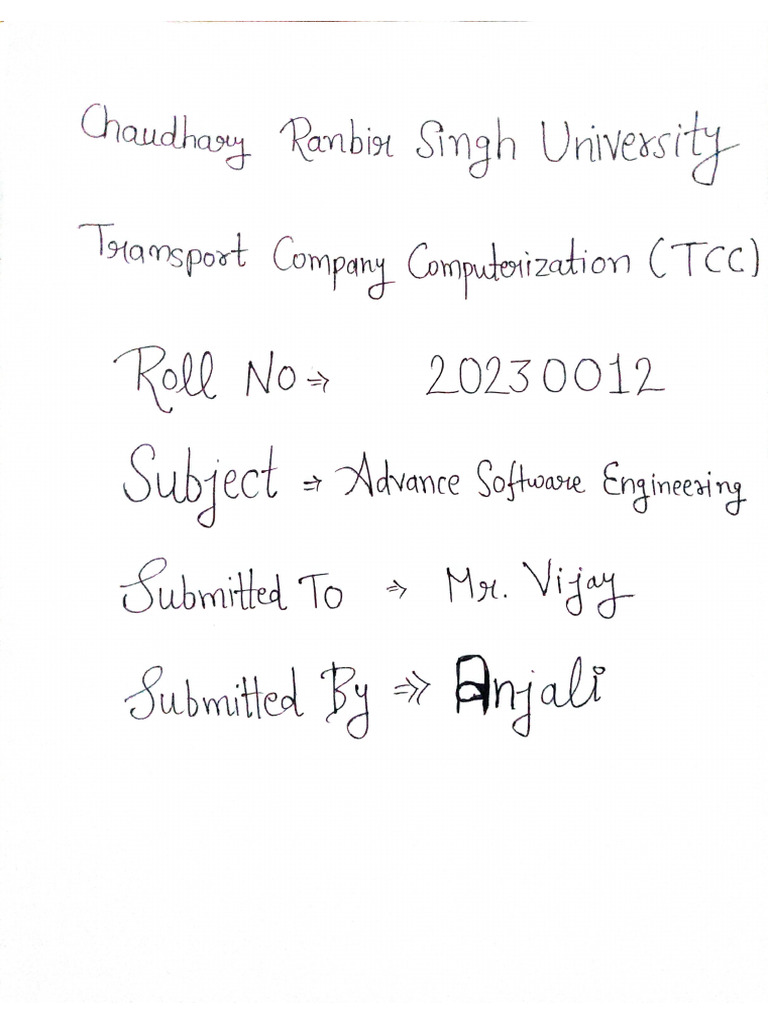 Chaudhary Ranbir Singh University
Transport Company Computerization (TCC)
Roll No ⇒ 20230012
Subject ⇒ Advance Software Engineering
Submitted To ⇒ Mr. Vijay
Submitted By ⇒» Anjali